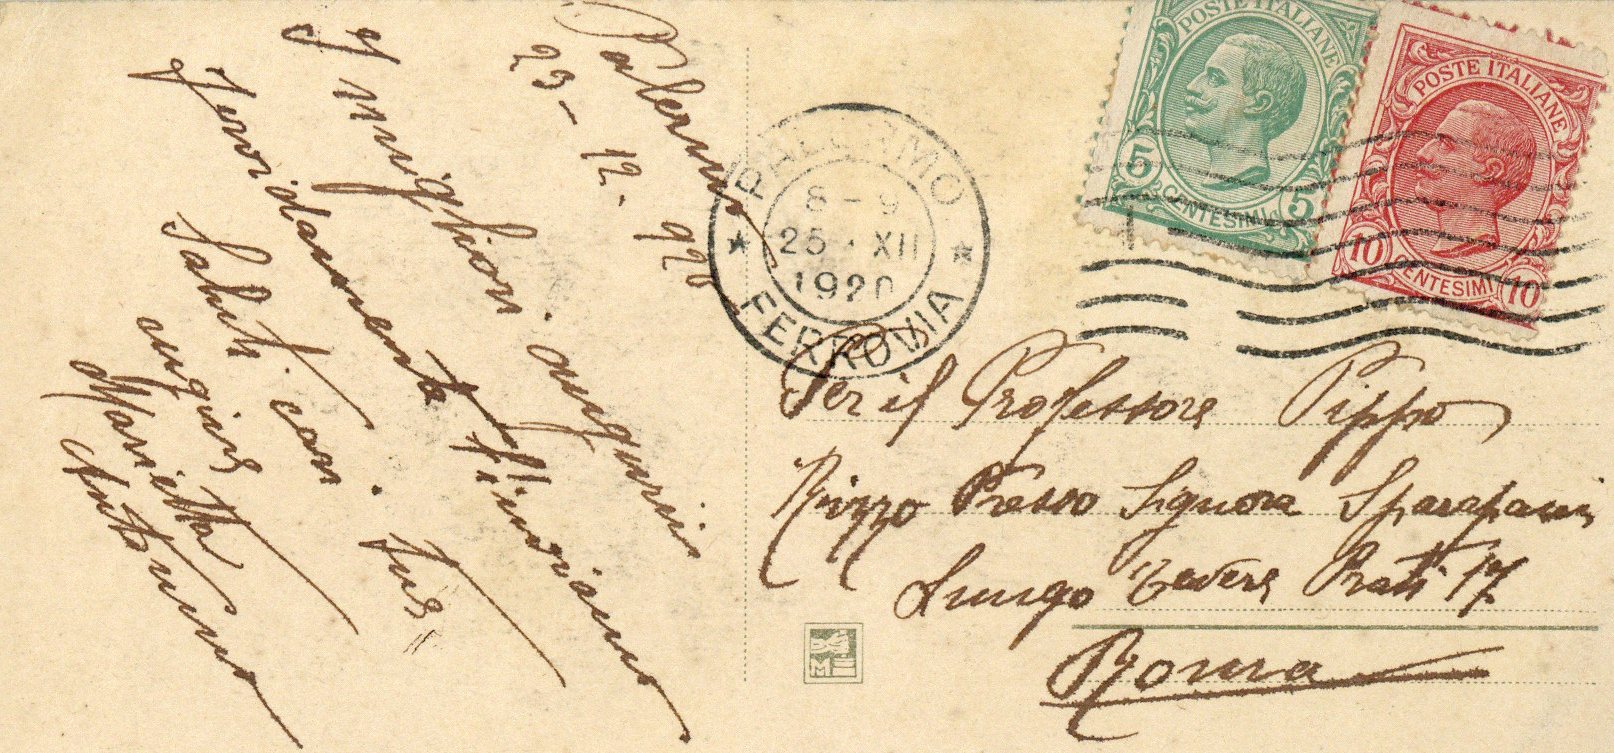 Palermo
23-12.920
I migliori auguri
fervidamente t'inviamo
Saluti cari. Tuoi
cugini
Marietta
Antonino
PALERMO
8-9
25·XII
1920
FERROVIA
POSTE ITALIANE
5 CENTESIMI 5
POSTE ITALIANE
10 CENTESIMI 10
Per il Professore Pippo
Rizzo Presso Signora Sparapani
Lungo Tevere Prati 17
Roma